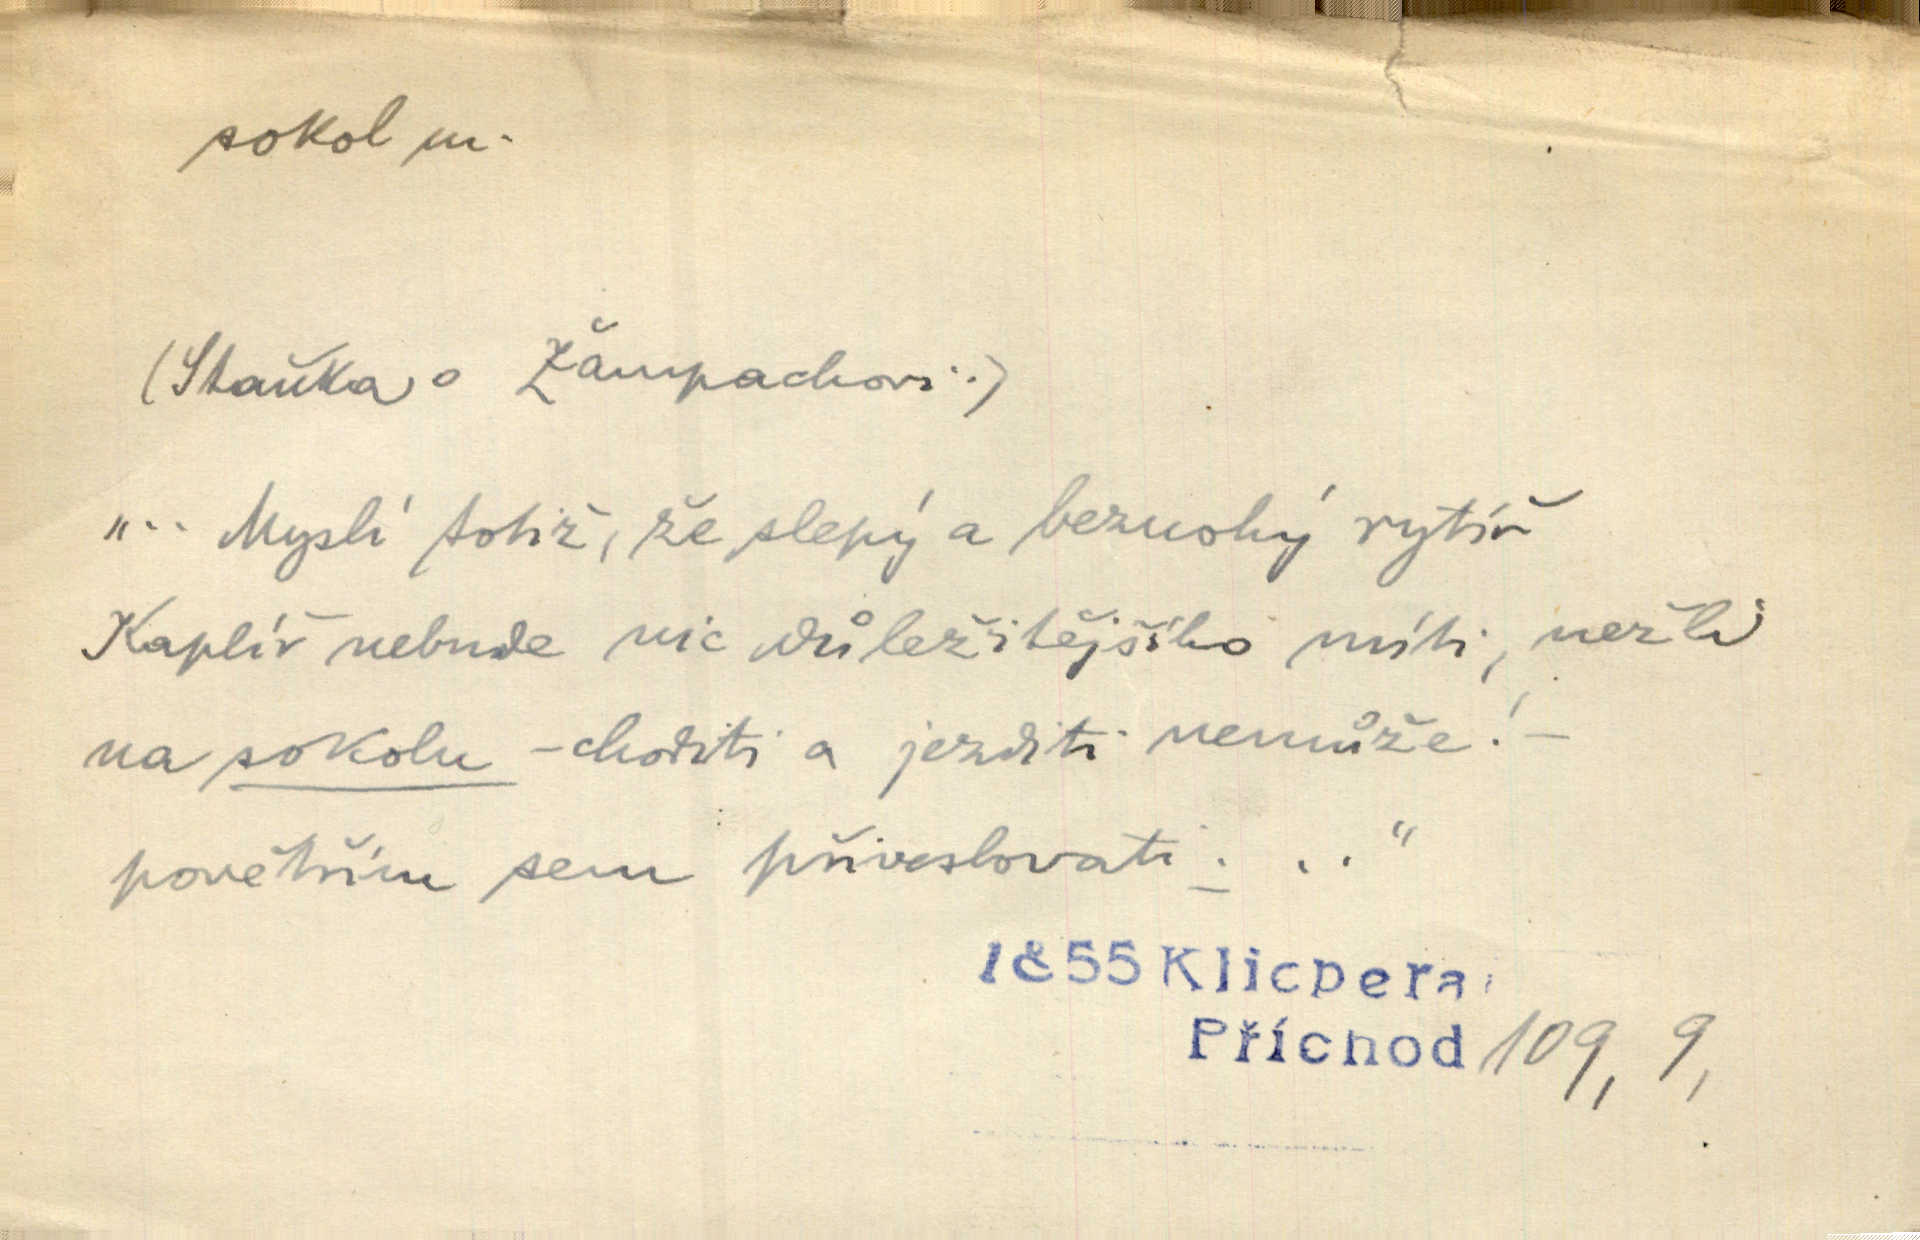 sokol m.
(Staňka o Žampachovi..)
„.. Myslí totiž, že slepý a beznohý rytíř
Kaplíř nebude nic důležitějšího míti, nežli
na sokolu - choditi a jezditi nemůže! -
povětřím sem přiveslovati. .. "
1855 Klicpera
Příchod 109, 9,